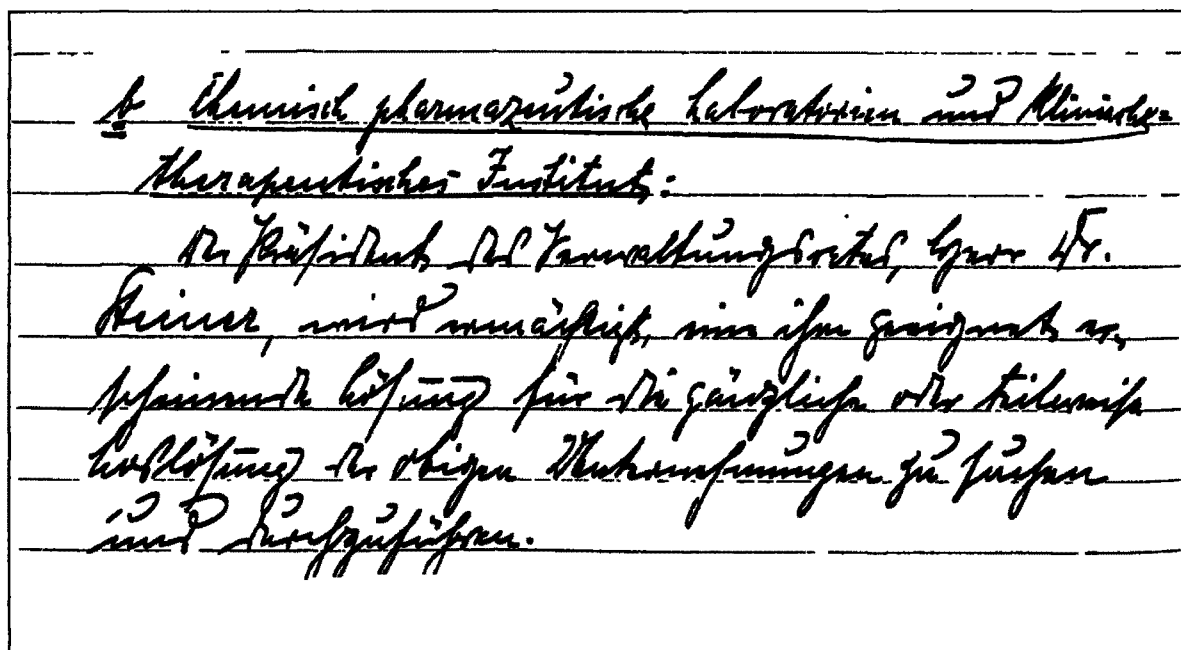 b Chemisch pharmazeutische Laboratorien und Klinische-
therapeutisches Institut:
Der Präsident des Verwaltungsrates, Herr Dr.
Steiner, wird ermächtigt, eine ihm geeignet er-
scheinende Lösung für die gänzliche oder teilweise
Loslösung der obigen Unternehmungen zu suchen
und durchzuführen.